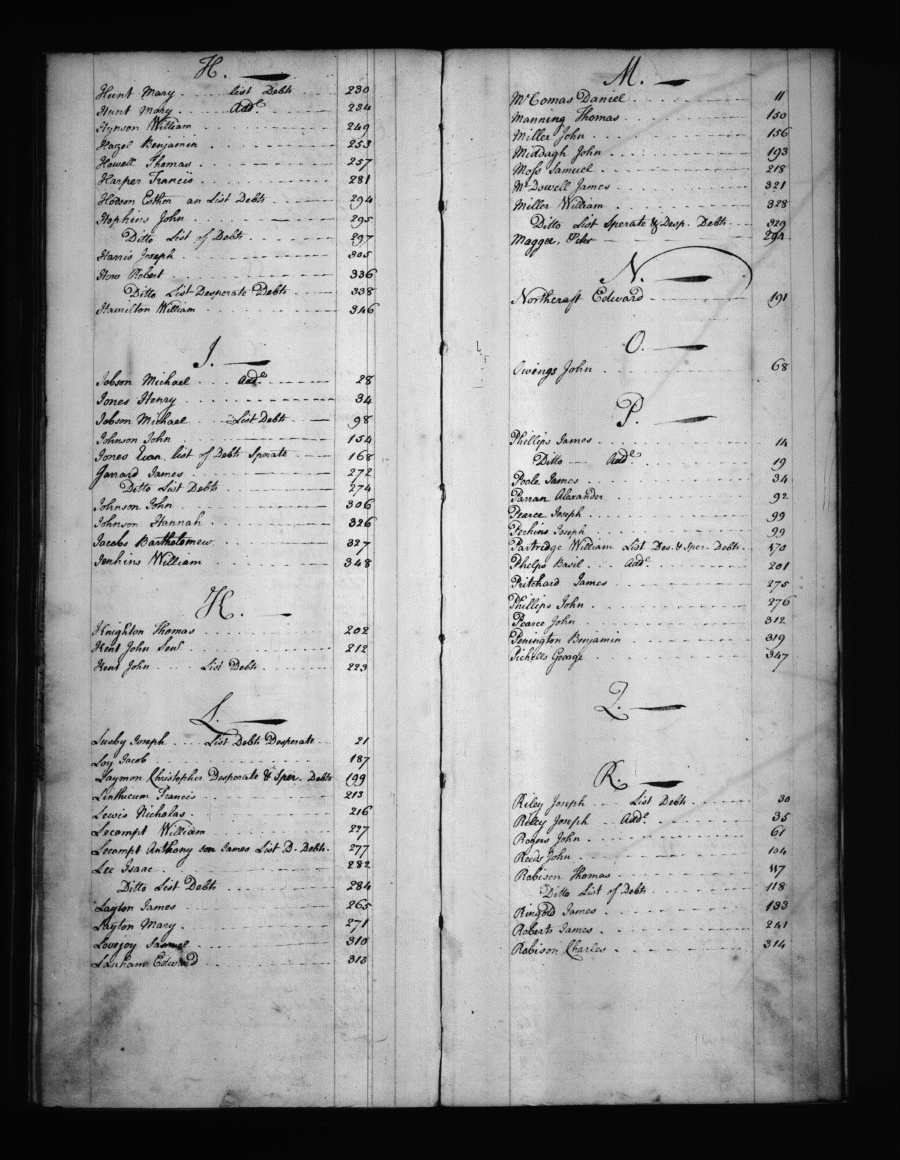 H.
Hunt Mary list Debts 230
Hunt Mary Add.l 234
Hynson William 249
Hazel Benjamin 253
Howell Thomas 257
Harper Francis 281
Hodson Esther an List Debts 294
Hopkins John 295
Ditto List of Debts 297
Harris Joseph 305
How Robert 336
Ditto List Desperate Debts 338
Hamilton William 346
I.
Iobson Michael Add.l 28
Iones Henry 34
Iobson Michael List Debts 98
Iohnson John 154
Iones Evan list of Debts Sperate 168
Iarrard Iames 272
Ditto List Debts 274
Iohnson Iohn 306
Iohnson Hannah 326
Iacobs Bartholomew 327
Ienkins William 348
K.
Knighton Thomas 202
Kent John Sen.r 212
Kent John List Debts 223
L.
Lusby Ioseph List Debts Desperate 21
Loy Iacob 187
Laymon Christopher Desperate & Sper. Debts 199
Linthicum Francis 213
Lewis Nicholas 216
Lecompt William 227
Lecompt Anthony son Iames List D. Debts 277
Lee Isaac 282
Ditto List Debts 284
Layton Iames 265
Layton Mary 271
Lovejoy Samuel 310
Lanham Edward 313
M.
McComas Daniel 11
Manning Thomas 150
Miller John 156
Middagh John 193
Moss Samuel 218
McDowell James 321
Miller William 328
Ditto List Sperate & Desp. Debts 329
Maggee 294
N.
Northcraft Edward 191
O.
Owings John 68
P.
Phillips James 14
Ditto Add.l 19
Poole James 34
Parran Alexander 92
Pearce Joseph 99
Perkins Joseph 99
Partridge William List Des. & Sper. Debts 170
Phelps Basil Add.l 201
Pritchard James 275
Phillips John 276
Pearce John 312
Penington Benjamin 319
Pickells George 347
Q.
R.
Riley Joseph List Debts 30
Riley Joseph Add.l 35
Rogers John 61
Reeds John 104
Robison Thomas 117
Ditto List of Debts 118
Ringold James 133
Roberts James 241
Robison Charles 314